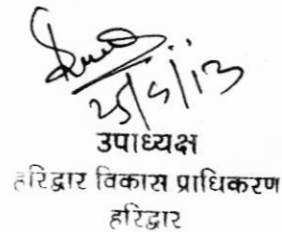 25/5/13
उपाध्यक्ष
हरिद्वार विकास प्राधिकरण
हरिद्वार